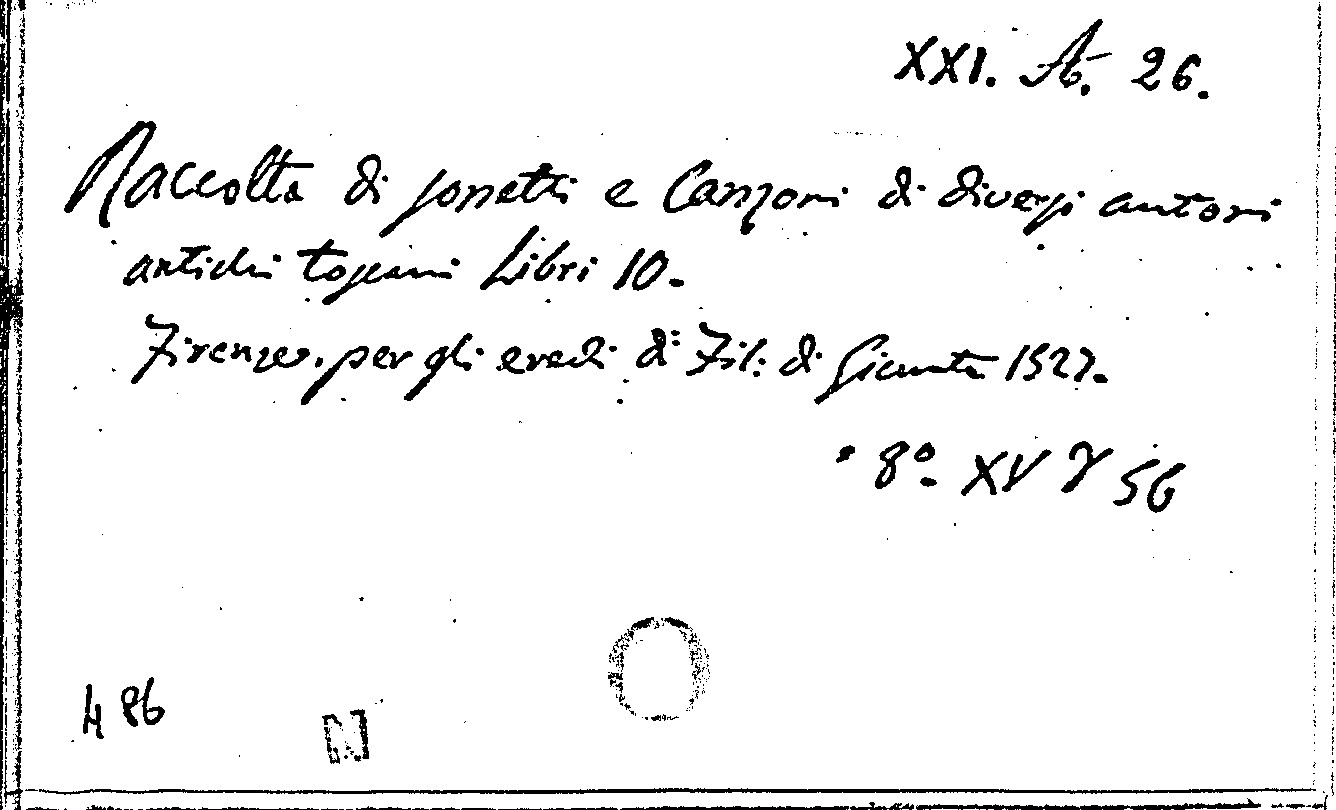 XXI. A. 26.
Raccolta di sonetti e Canzoni di diversi autori
antichi toscani Libri 10.
Firenze. per gli eredi di Fil: di Giunta 1527.
8º. XV γ 56
486
N